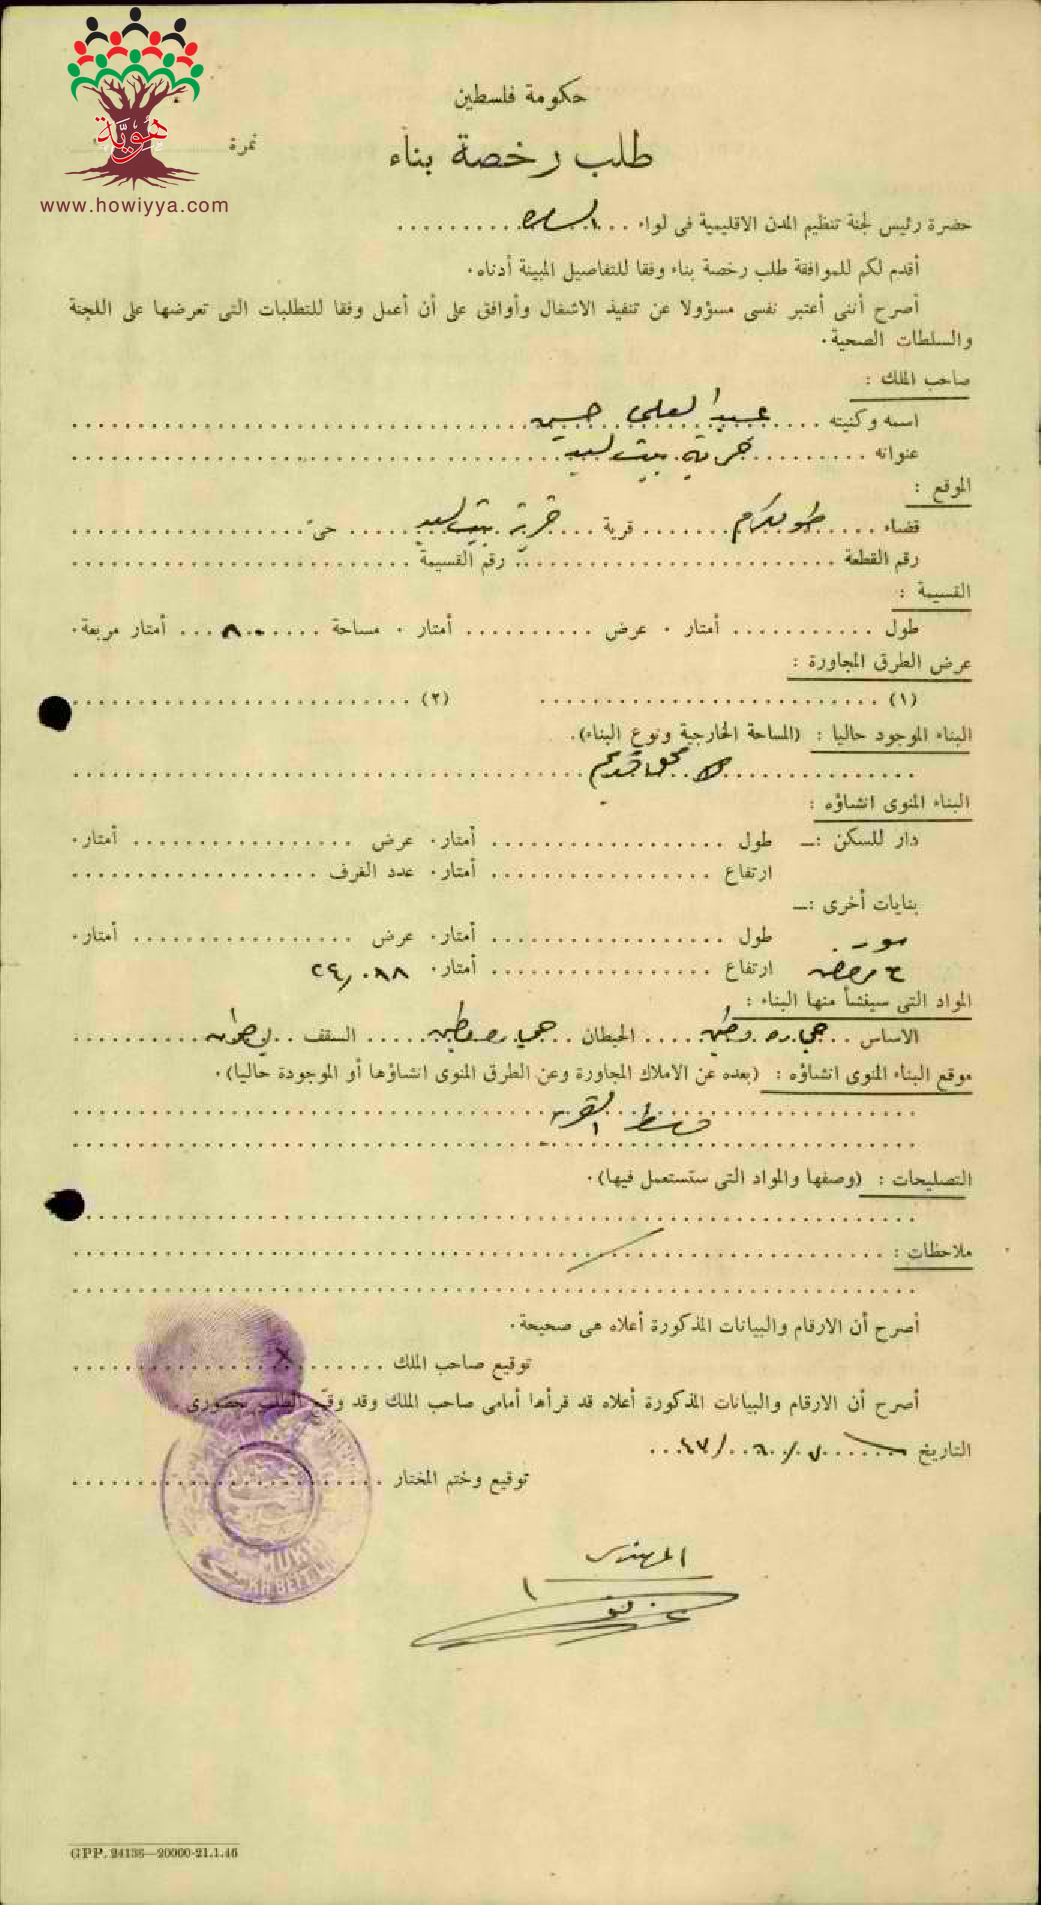 هويّة
www.howiyya.com
حكومة فلسطين
طلب رخصة بناء
نمرة
حضرة رئيس لجنة تنظيم المدن الاقليمية فى لواء السامرة
أقدم لكم للموافقة طلب رخصة بناء وفقا للتفاصيل المبينة أدناه.
أصرح أننى أعتبر نفسى مسؤولا عن تنفيذ الاشغال وأوافق على أن أعمل وفقا للتطلبات التى تعرضها على اللجنة
والسلطات الصحية.
صاحب الملك :
اسمه وكنيته عبد العلي حسين
عنوانه خربة بيت ليد
الموقع :
قضاء طولكرم قرية خربة بيت ليد حىّ
رقم القطعة رقم القسيمة
القسيمة :
طول أمتار . عرض أمتار . مساحة ٨٠ أمتار مربعة.
عرض الطرق المجاورة :
(١) (٢)
البناء الموجود حاليا : (المساحة الخارجية ونوع البناء).
محل قديم
البناء المنوى انشاؤه :
دار للسكن :ــ طول أمتار. عرض أمتار.
ارتفاع أمتار. عدد الغرف
بنايات أخرى :ــ
طول أمتار. عرض أمتار.
ارتفاع أمتار.
المواد التى سينشأ منها البناء :
الاساس حجاره وطين الحيطان حجاره وطين السقف
موقع البناء المنوى انشاؤه : (بعده عن الاملاك المجاورة وعن الطرق المنوى انشاؤها أو الموجودة حاليا).
وسط القرية
التصليحات : (وصفها والمواد التى ستستعمل فيها).
ملاحظات :
أصرح أن الارقام والبيانات المذكورة أعلاه هى صحيحة.
توقيع صاحب الملك
أصرح أن الارقام والبيانات المذكورة أعلاه قد قرأها أمامى صاحب الملك وقد وقّع الطلب بحضورى
التاريخ ٧/٦/٤٧
توقيع وختم المختار
المهندس
GPP. 24136—20000-21.1.46